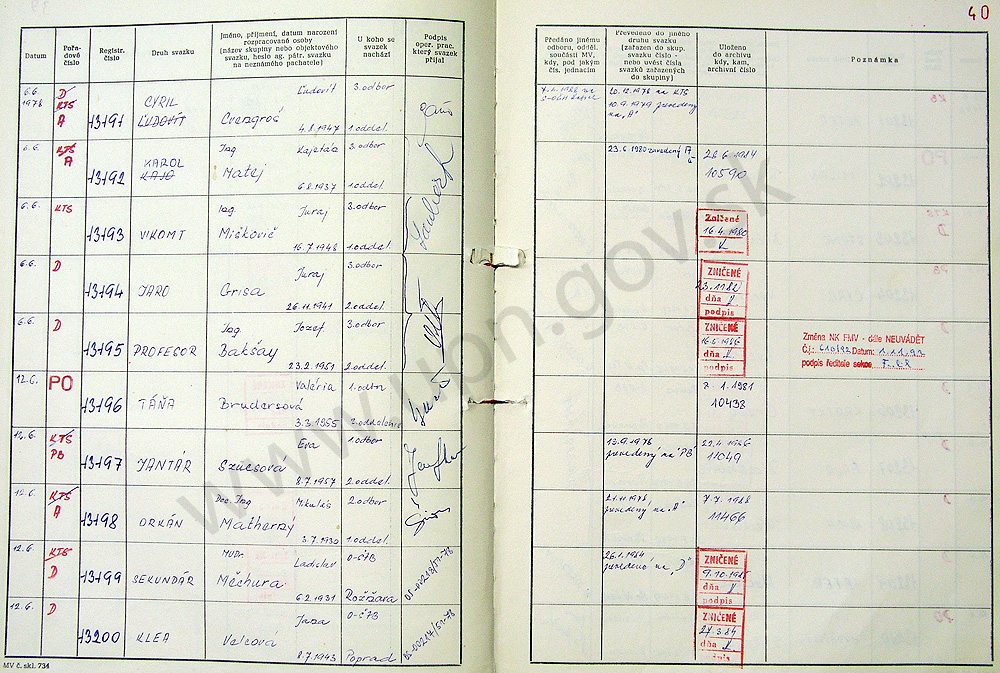 40
Datum
Pořadové číslo
Registr. číslo
Druh svazku
Jméno, příjmení, datum narození rozpracované osoby (název skupiny nebo objektového svazku, heslo ag. pátr. svazku na neznámého pachatele)
U koho se svazek nachází
Podpis oper. prac. který svazek přijal
Předáno jinému odboru, odděl. součásti MV, kdy, pod jakým čís. jednacím
Převedeno do jiného druhu svazku (zařazen do skup. svazku číslo - nebo uvést čísla svazků zařazených do skupiny)
Uloženo do archivu kdy, kam, archivní číslo
Poznámka
6.6. 1978 D KTS A 13191 CYRIL ĽUDOVÍT Ľudovít Cvengroš 4.8.1947 3.odbor 1.oddel.
20.12.1978 na KTS
10.9.1979 prevedený na "A"
6.6. KTS A 13192 KAROL KAJO Ing Kajetán Matej 6.8.1937 3.odbor 1.oddel.
23.6.1980 zavedený A
28.6.1984
10590
6.6. KTS 13193 VIKOMT Ing. Juraj Miškovič 16.7.1948 3.odbor 1.oddel.
Zničené
16.4.1980
6.6. D 13194 JARO Juraj Grisa 26.11.1941 3.odbor 2.oddel.
ZNIČENÉ
23.1.1982
dňa
podpis
6.6. D 13195 PROFESOR Ing. Jozef Bakšay 23.2.1951 3.odbor 2.oddel.
ZNIČENÉ
16.6.1986
dňa
podpis
Změna NK FMV - dále NEUVÁDĚT
Čj: 610/92 Datum: 1.11.92
podpis ředitele sekce
12.6. PO 13196 TÁŇA Valéria Brudersová 3.3.1955 1.odbor 2.oddelenie
2.1.1981
10438
12.6. KTS PB 13197 JANTÁR Eva Szucsová 8.7.1957 1.odbor 2.oddel.
13.9.1978 prevedený na "PB"
11049
12.6. KTS A 13198 ORKÁN Doc. Ing Mikuláš Matherny 3.7.1930 2.odbor 1.oddel.
21.11.1978 prevedený na "A"
7.7.1988
11466
12.6. KTS D 13199 SEKUNDÁR MUDr. Ladislav Měchura 6.2.1931 O-ŠTB Rožňava
26.1.1984 prevedené na "D"
ZNIČENÉ
dňa
podpis
12.6. D 13200 KLEA Jana Valcová 8.7.1943 O-ŠTB Poprad
ZNIČENÉ
dňa
MV č. skl. 734
www.upn.gov.sk